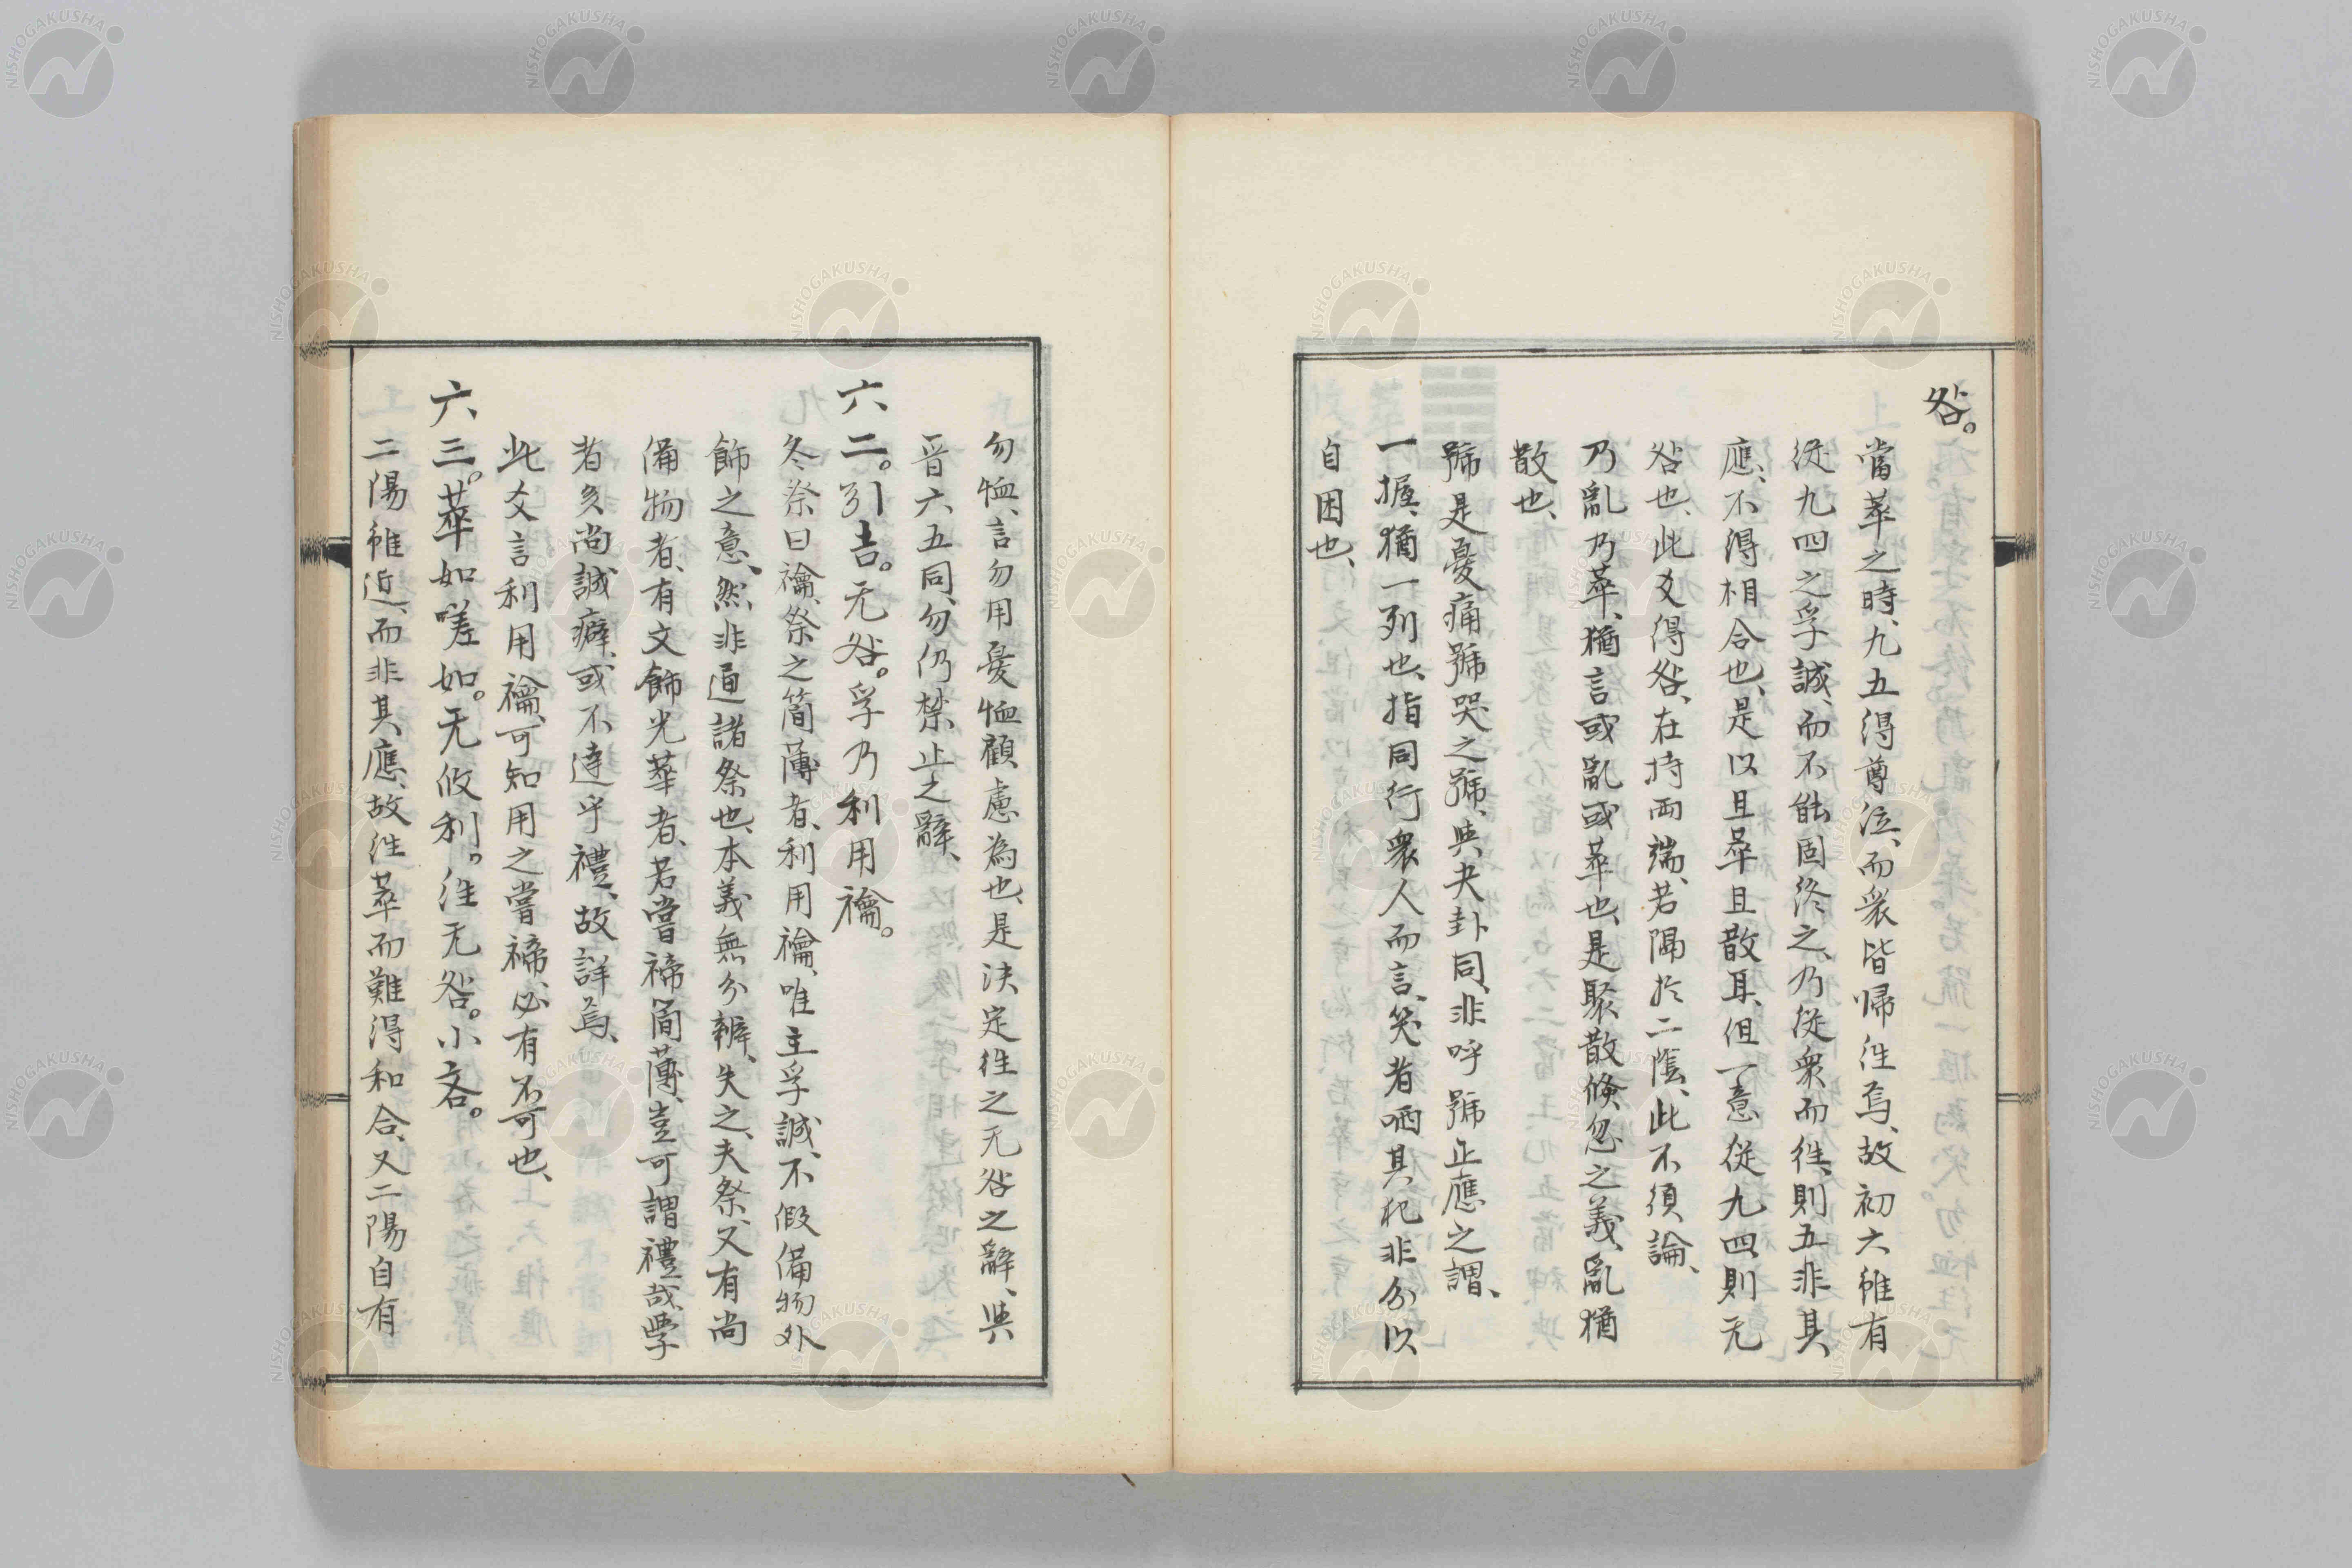 咎。
當萃之時、九五得尊位、而衆皆帰往焉、故初六雖有
従九四之孚誠、而不能固終之、乃従衆而往、則五非其
應、不得相合也、是以且萃且散耳、但一意従九四則无
咎也、此爻得咎、在持兩端、若隔於二陰、此不須論、
乃亂乃萃、猶言或亂或萃也、是聚散倏忽之義、亂猶
散也、
號是憂痛號哭之號、與夬卦同、非呼號止應之謂、
一握、猶一列也、指同行衆人而言、笑者哂其犯非分以
自困也、
勿恤、言勿用憂恤顧慮為也、是決定往之无咎之辭、與
晋六五同、勿仍禁止之辭、
六二。引吉。无咎。孚乃利用禴。
冬祭曰禴、祭之簡薄者、利用禴、唯主孚誠、不假備物外
飾之意、然非通諸祭也、本義無分辨、失之、夫祭、又有尚
備物者、有文飾光華者、若嘗禘簡薄、豈可謂禮哉、學
者多尚誠癖、或不達乎禮、故詳焉、
此爻言利用禴、可知用之嘗禘、必有不可也、
六三。萃如嗟如。无攸利。往无咎。小吝。
二陽雖近、而非其應、故往萃而難得和合、又二陽自有
NISHOGAKUSHA